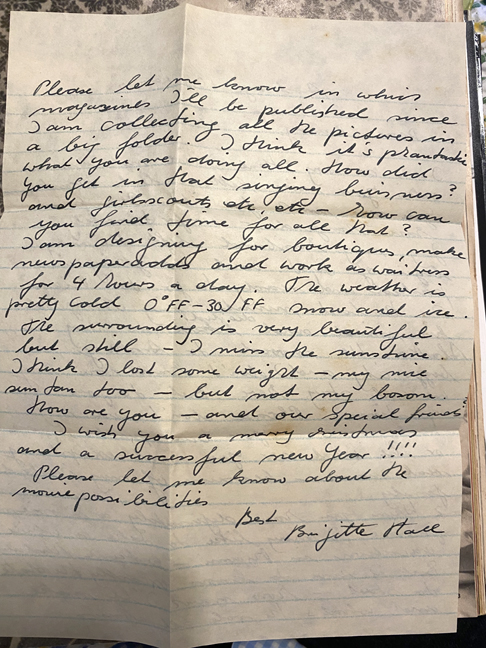 Please let me know in which
magazines I'll be published since
I am collecting all the pictures in
a big folder. I think it's phantastic
what you are doing all. How did
you get in that singing buisness?
and girlscouts etc, etc – how can
you find time for all that?
I am designing for boutiques, make
newspaperadds and work as waitress
for 4 hours a day. The weather is
pretty cold 0°FF–30/FF snow and ice.
The surrounding is very beautiful
but still – I miss the sunshine.
I think I lost some weight – my nice
sun tan too – but not my bosom.
How are you – and our special friend?
I wish you a merry christmas
and a successful new Year !!!!
Please let me know about the
movie possibilities
Best
Brigitte Hall